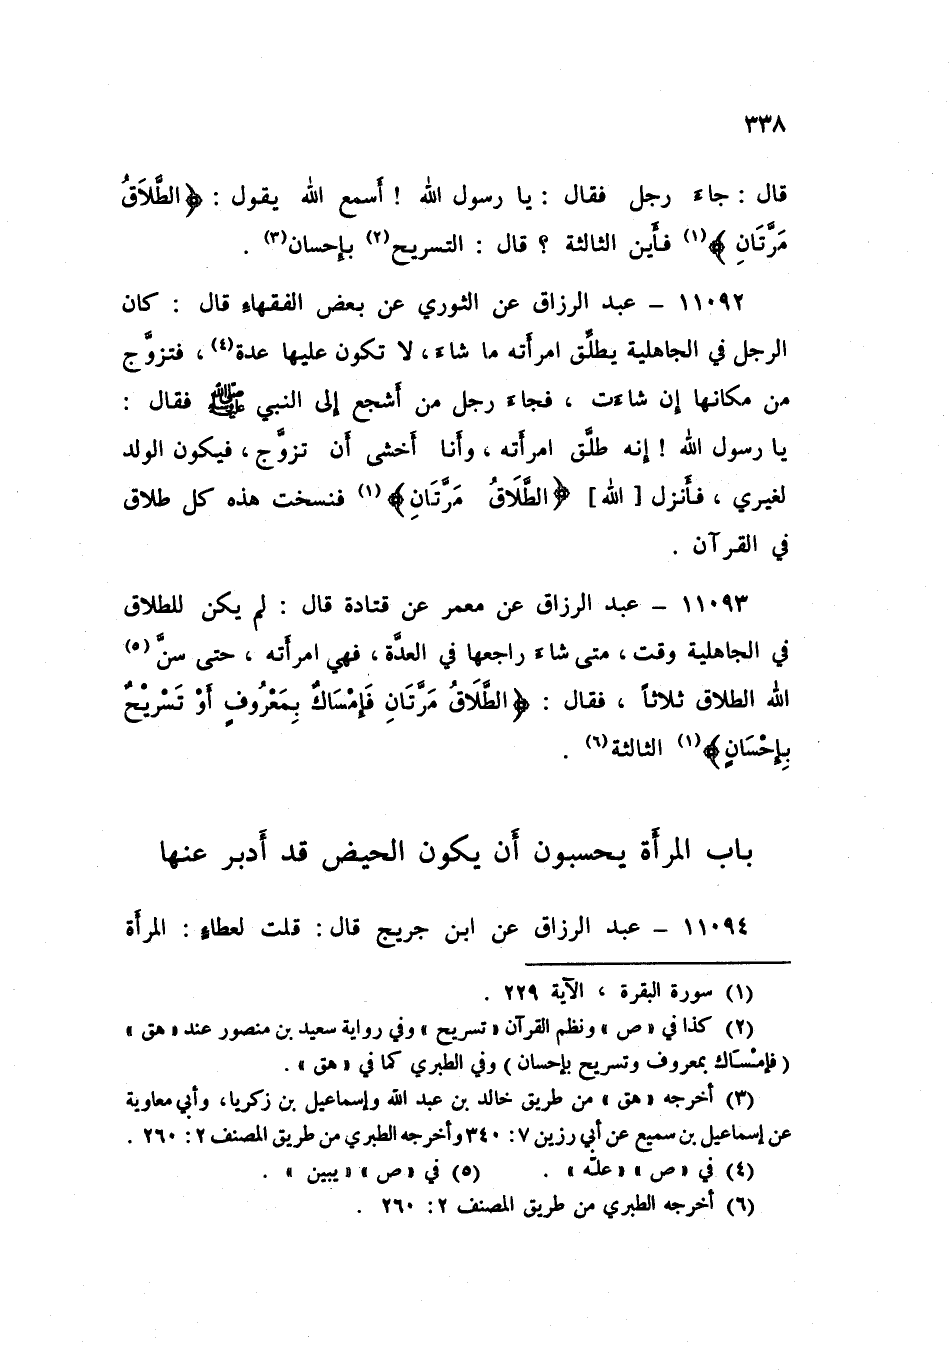 ٣٣٨
قال : جاء رجل فقال : يا رسول الله ! أسمع الله يقول : ﴿الطَّلَاقُ
مَرَّتَانِ﴾(١) فأين الثالثة ؟ قال : التسريح(٢) بإحسان(٣) .
١١٠٩٢ – عبد الرزاق عن الثوري عن بعض الفقهاء قال : كان
الرجل في الجاهلية يطلِّق امرأته ما شاء ، لا تكون عليها عدة(٤) ، فتزوَّج
من مكانها إن شاءت ، فجاء رجل من أشجع إلى النبي ﷺ فقال :
يا رسول الله ! إنه طلَّق امرأته ، وأنا أخشى أن تزوَّج ، فيكون الولد
لغيري ، فأنزل [ الله ] ﴿الطَّلَاقُ مَرَّتَانِ﴾(١) فنسخت هذه كل طلاق
في القرآن .
١١٠٩٣ – عبد الرزاق عن معمر عن قتادة قال : لم يكن للطلاق
في الجاهلية وقت ، متى شاء راجعها في العدَّة ، فهي امرأته ، حتى سنَّ(٥)
الله الطلاق ثلاثاً ، فقال : ﴿الطَّلَاقُ مَرَّتَانِ فَإِمْسَاكٌ بِمَعْرُوفٍ أَوْ تَسْرِيْحٌ
بِإِحْسَانٍ﴾(١) الثالثة(٦) .
باب المرأة يحسبون أن يكون الحيض قد أدبر عنها
١١٠٩٤ – عبد الرزاق عن ابن جريج قال : قلت لعطاء : المرأة
(١) سورة البقرة ، الآية ٢٢٩ .
(٢) كذا في « ص » ونظم القرآن « تسريح » وفي رواية سعيد بن منصور عند « هق »
( فإمْسَاك بمعروف وتسريح بإحسان ) وفي الطبري كما في « هق » .
(٣) أخرجه « هق » من طريق خالد بن عبد الله وإسماعيل بن زكريا ، وأبي معاوية
عن إسماعيل بن سميع عن أبي رزين ٧ : ٣٤٠ وأخرجه الطبري من طريق المصنف ٢ : ٢٦٠ .
(٤) في « ص » « علّه » . (٥) في « ص » « يبين » .
(٦) أخرجه الطبري من طريق المصنف ٢ : ٢٦٠ .